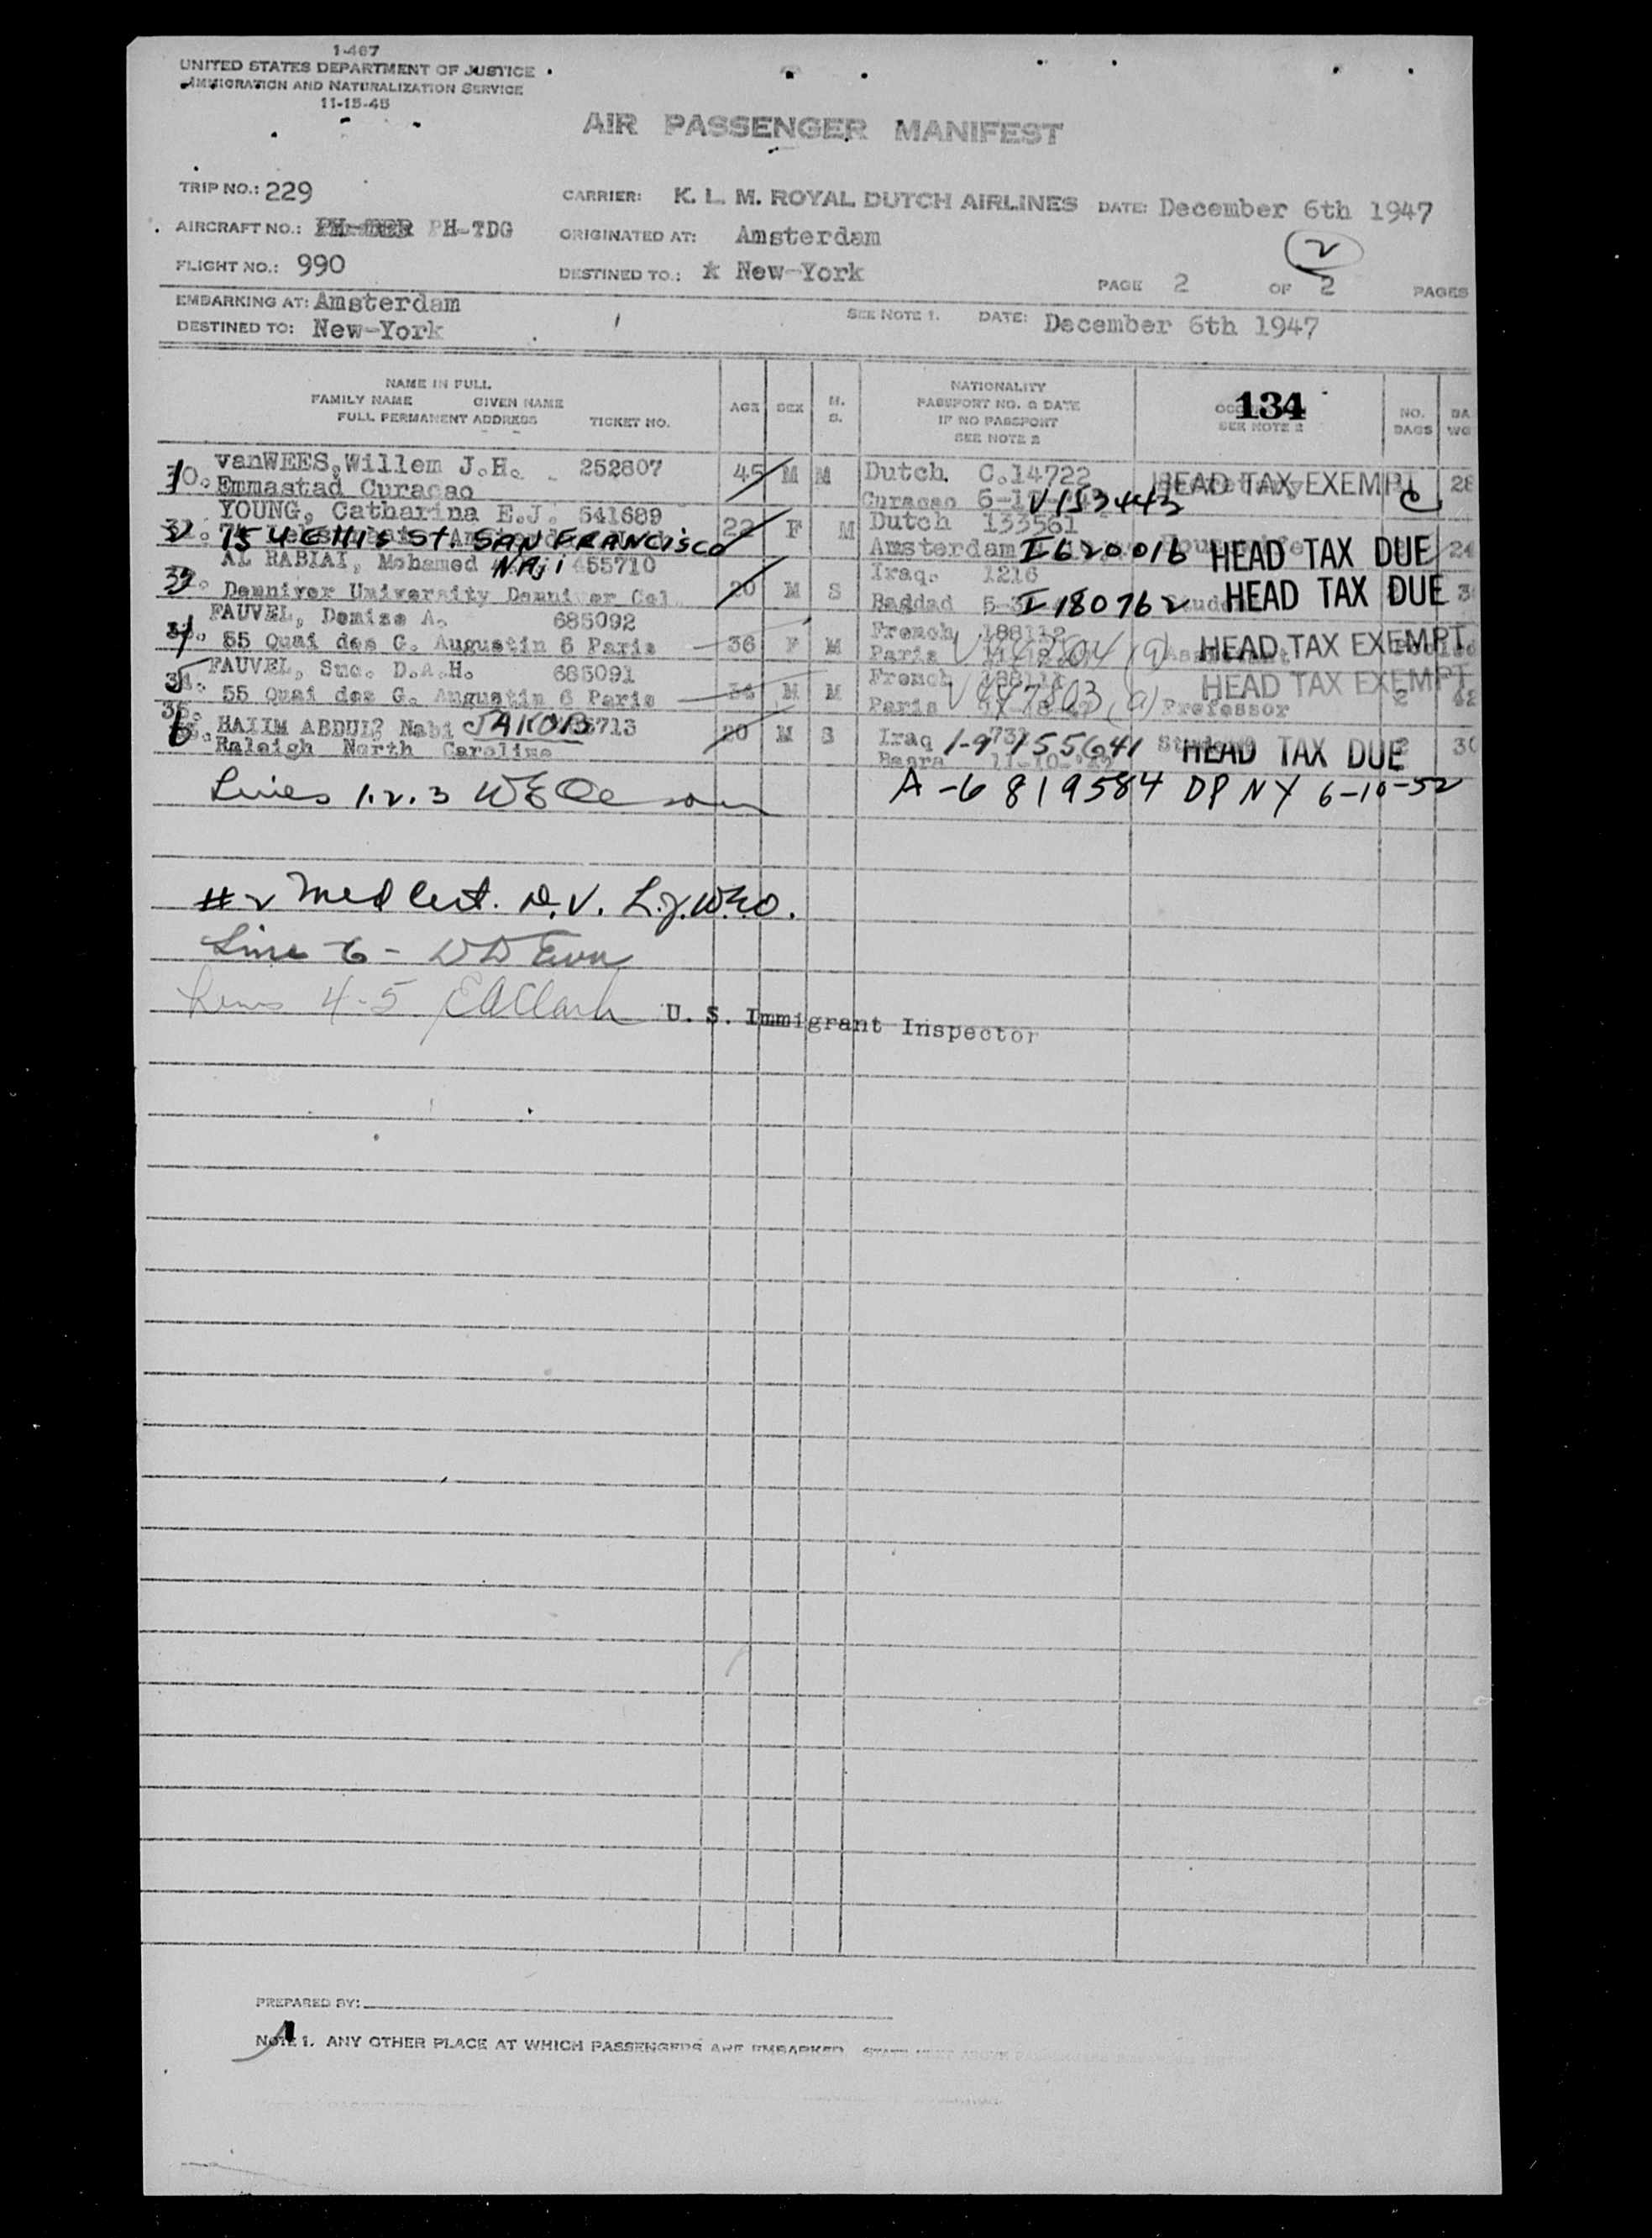 1-467
UNITED STATES DEPARTMENT OF JUSTICE
IMMIGRATION AND NATURALIZATION SERVICE
11-15-45
AIR PASSENGER MANIFEST
TRIP NO.: 229 CARRIER: K. L. M. ROYAL DUTCH AIRLINES DATE: December 6th 1947
AIRCRAFT NO.: PH-TDG ORIGINATED AT: Amsterdam
2
FLIGHT NO.: 990 DESTINED TO: New-York PAGE 2 OF 2 PAGES
EMBARKING AT: Amsterdam
DESTINED TO: New-York SEE NOTE 1. DATE: December 6th 1947
NAME IN FULL
FAMILY NAME GIVEN NAME
FULL PERMANENT ADDRESS TICKET NO. AGE SEX M. S. NATIONALITY PASSPORT NO. & DATE IF NO PASSPORT SEE NOTE 2 134 SEE NOTE 2 NO. BAGS
vanWEES, Willem J.H. 252807 45 M M Dutch. C.14722 HEAD TAX EXEMPT 28
Emmastad Curacao Curacao V153443 C
YOUNG, Catharina E.J. 541689 22 F M Dutch 133561
754 Ellis St. SAN FRANCISCO Amsterdam I620016 HEAD TAX DUE 24
AL RABIAI, Mohamed NAji 455710 20 M S Iraq. 1216
Denniver University Denniver Col Bagdad I180762 HEAD TAX DUE
FAUVEL, Denise A. 685092 36 F M French 188112
55 Quai des G. Augustin 6 Paris Paris (a) HEAD TAX EXEMPT
FAUVEL, Suc. D.A.H. 685091 34 M M French
55 Quai des G. Augustin 6 Paris Paris (a) Professor HEAD TAX EXEMPT 2 42
HAIIM ABDUL? Nabi JAKOB 20 M S Iraq 1-9 155641 Student HEAD TAX DUE 2 30
Raleigh North Caroline Basra
Lines 1.2.3 A-6 819584 DP NY 6-10-52
#2 Med Cert.
Line 6 -
Lines 4-5 U. S. Immigrant Inspector
PREPARED BY:
NOTE 1. ANY OTHER PLACE AT WHICH PASSENGERS ARE EMBARKED